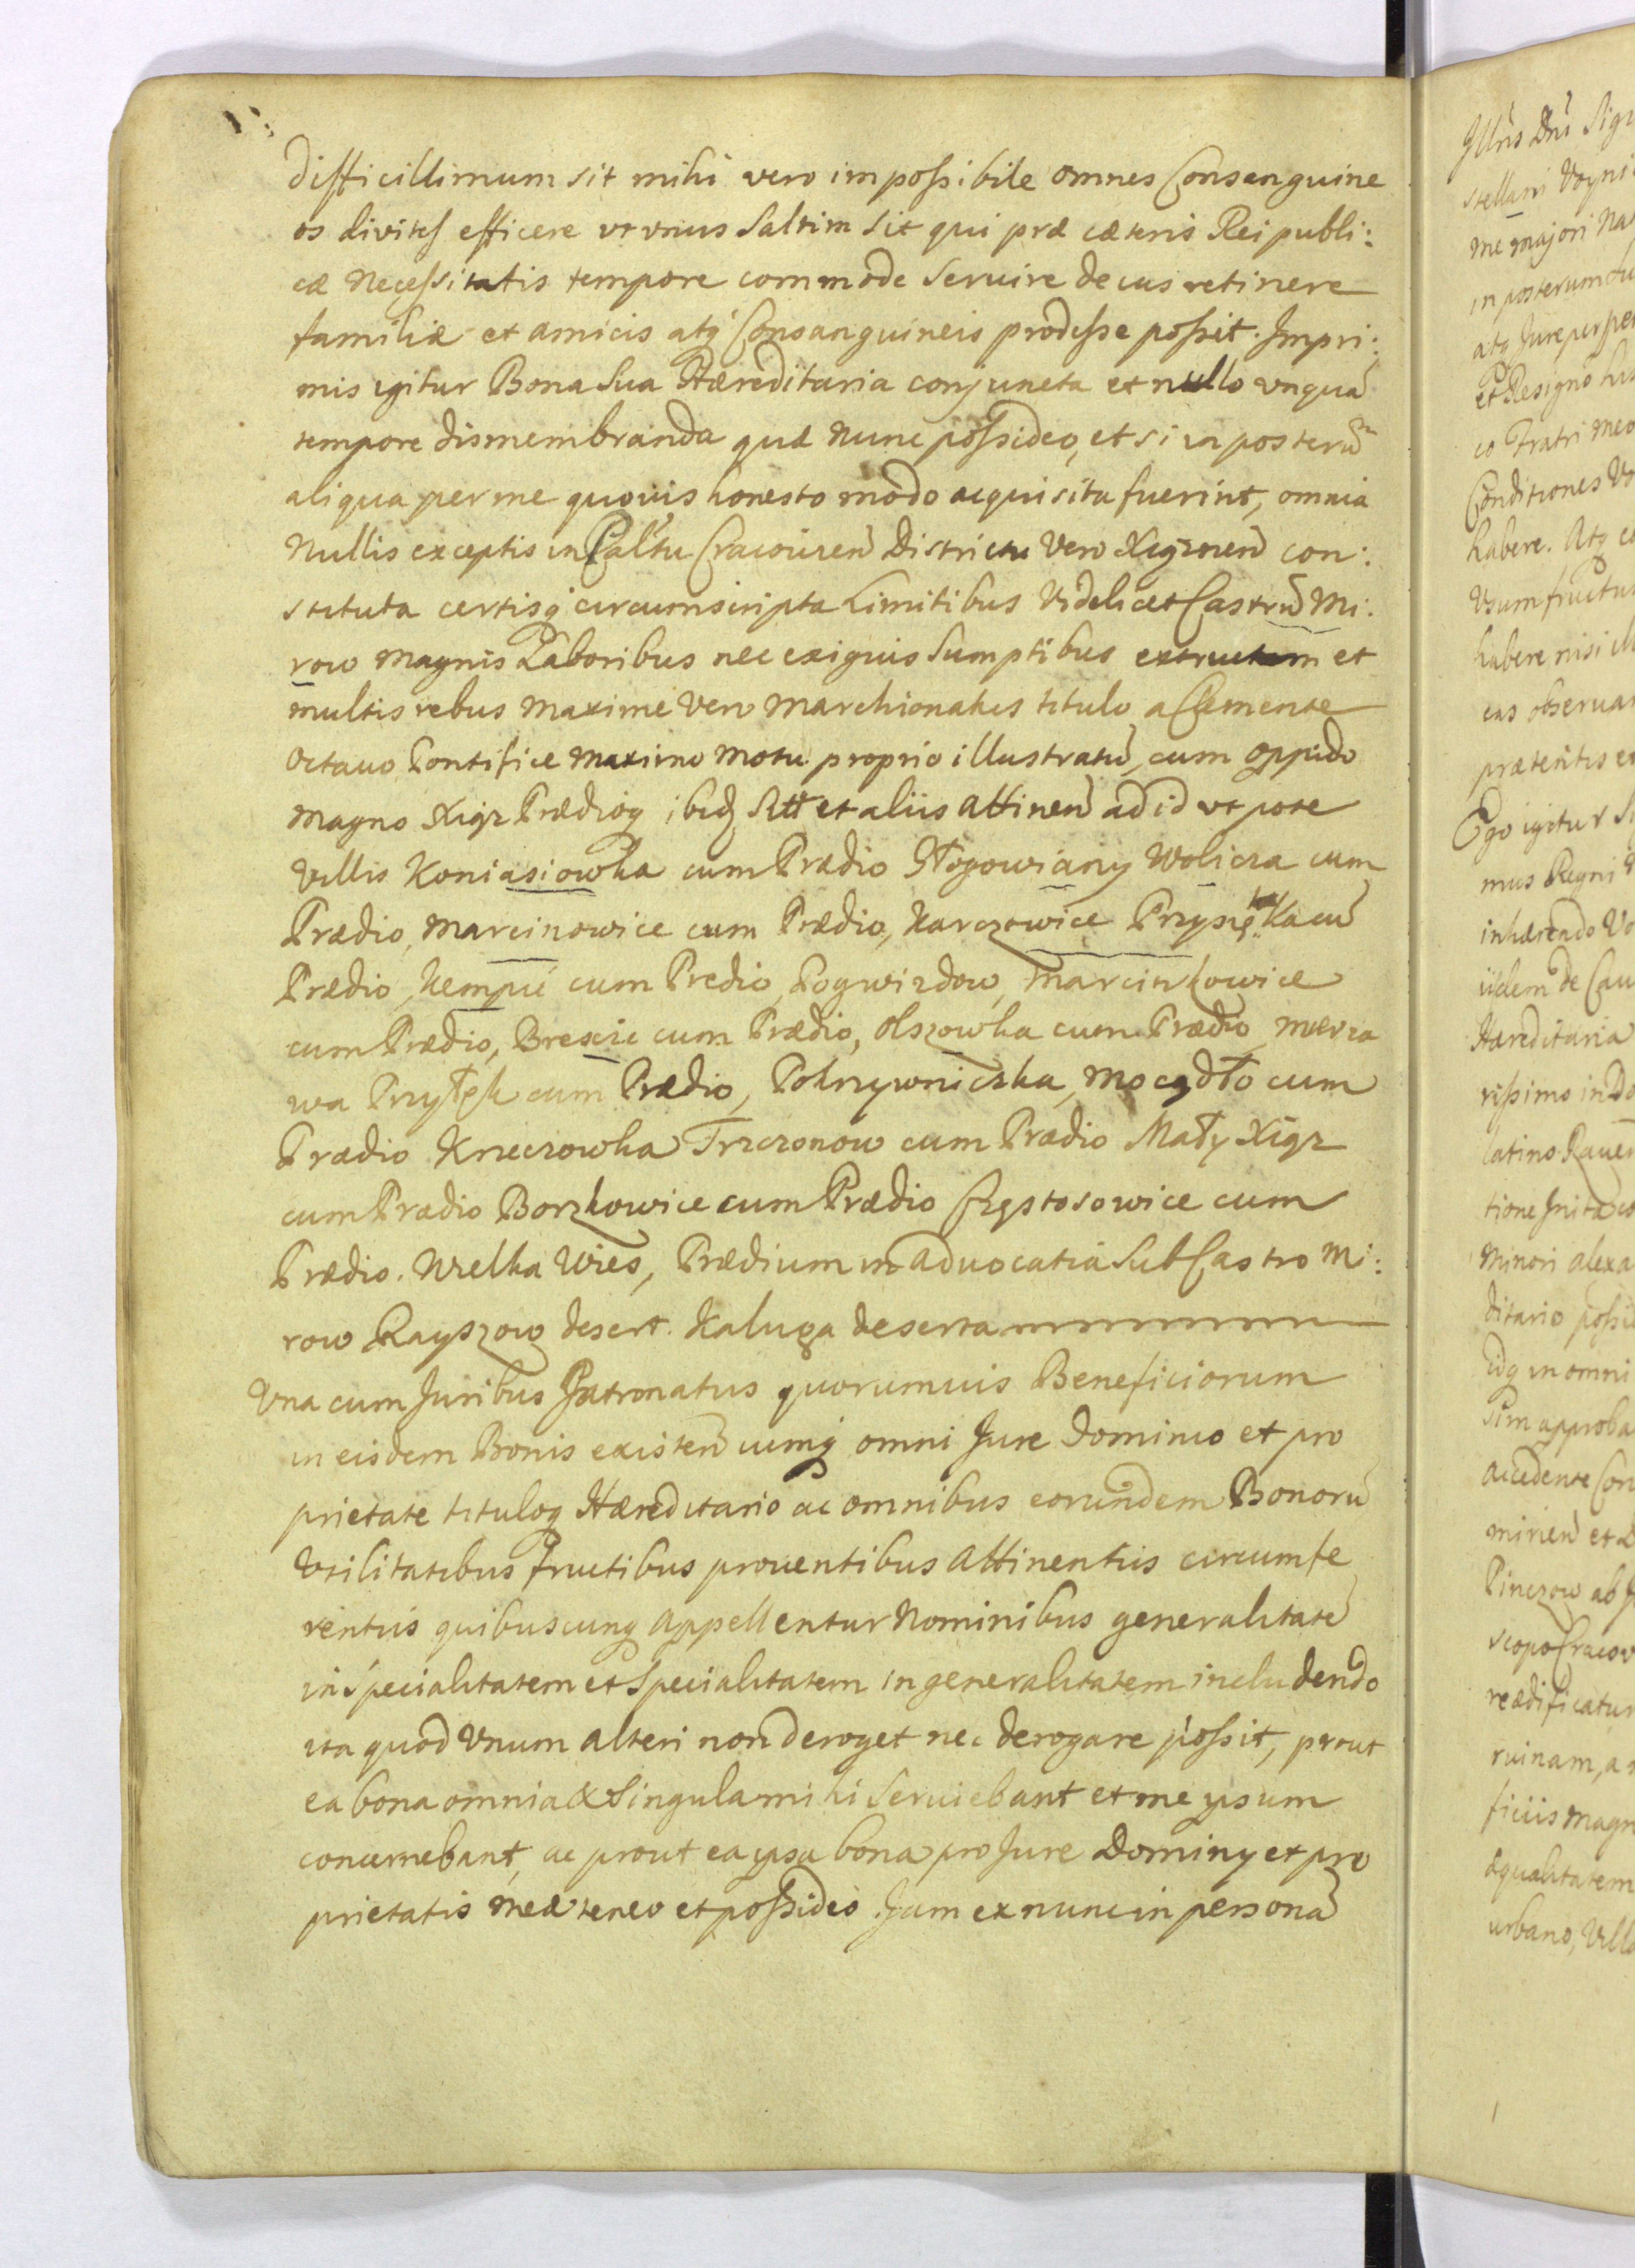 difficillimum sit mihi vero impossibile omnes Consanguine
os divites efficere vt vnus Saltim sit qui præ cæteris Rei publi:
cæ Necessitatis tempore commode Seruire decus retinere
familiæ et amicis atq₃ Consanguineis prodesse possit. Impri:
mis igitur Bona Sua Hæreditaria conjuncta et nullo vnquā
tempore dismembranda quæ Nunc possideo, et si in posterū
aliqua per me quouis honesto modo acquisita fuerint, omnia
Nullis exceptis in Pal̃tu Cracouien̄ Districtu Vero Xigznen̄ con:
stituta certisq₃ circumscripta Limitibus Videlicet Castrū Mi:
row magnis Laboribus nec exiguis Sumptibus extructum et
multis rebus Maxime Vero Marchionatus titulo a Clemente
Octauo Pontifice Maximo Motu proprio illustratū, cum Oppido
Magno Xigz Prædioq₃ ibid₃ Sitt et aliis Attinen̄ ad id vt pote
Villis Koniasiowka cum Prædio Głogowiany Wolicza cum
Prædio, Marcinowice cum Prædio, Karczowice Przysięka cū
Prædio, Kempie cum Predio, Pogwizdow, Marcinkowice
cum Prædio, Brescie cum Prædio, Olszowka cum Prædio Mierza
wa Przyłęk cum Prædio, Pokrzywniczka, Moczydło cum
Prædio Krzeczowka Trzczonow cum Prædio Mały Xigz
cum Prædio Borzkowice cum Prædio Częstosowice cum
Prædio. Wielka Wies, Prædium in Aduocatia Sub Castro Mi:
row Rayszow desert. Kaluga deserta
Vna cum Juribus Patronatus quorumuis Beneficiorum
in eisdem Bonis existen̄ cumq₃ omni Jure Dominio et pro
prietate tituloq₃ Hæreditario ac omnibus eorundem Bonorū
Vtilitatibus fructibus prouentibus Attinentiis circumfe
rentiis quibuscunq₃ Appellentur Nominibus generalitatē
in Specialitatem et Specialitatem in generalitatem includendo
ita quod Vnum alteri non deroget nec derogare possit, prout
ea bona omnia & Singula mihi Seruiebant et me ipsum
concernebant, ac prout ea ipsa bona pro Jure Dominy et pro
prietatis meæ teneo et possideo. Jam ex nunc in personā
Illris Dni Sigi
stellani Voyni
me majori Na
in posterum
atq₃ Jure perpe
et Resigno his
co Fratri meo
Conditiones Vo
habere. Atq₃ co
Vsumfructu
habere nisi
eas obseruar
prætentis
Ego igitur Si
mus Regni
inhærendo Vo
iidem de Cau
Hæreditaria
rissimo in Do
latino Rauen
tione Inita co
Minori alexa
ditario possi
idq₃ in omni
sim approba
accedente Con
mirien̄ et
Pinczow ab
scopo Cracov
reædificatur
ruinam, a
ficiis Magn
æqualitatem
urbano, Villa